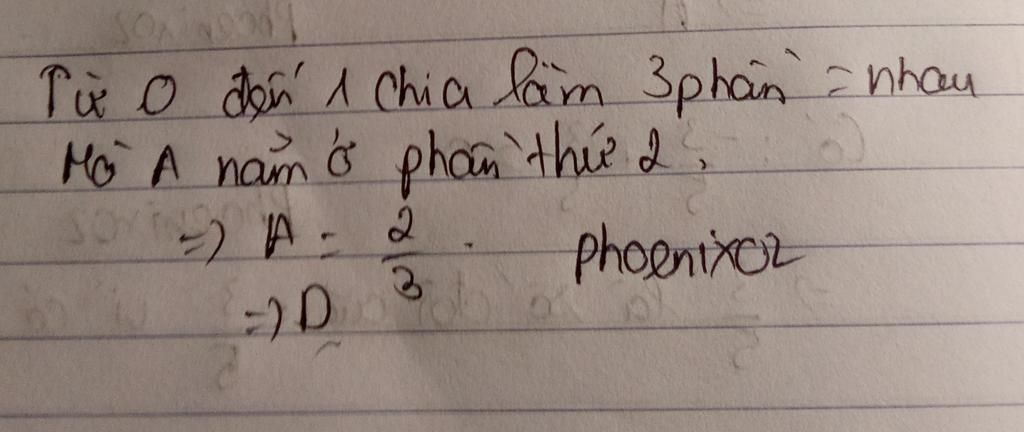 Từ 0 đến 1 chia làm 3 phần = nhau
Mà A nằm ở phần thứ 2.
=> A = 2/3. phoenixoz
=> D